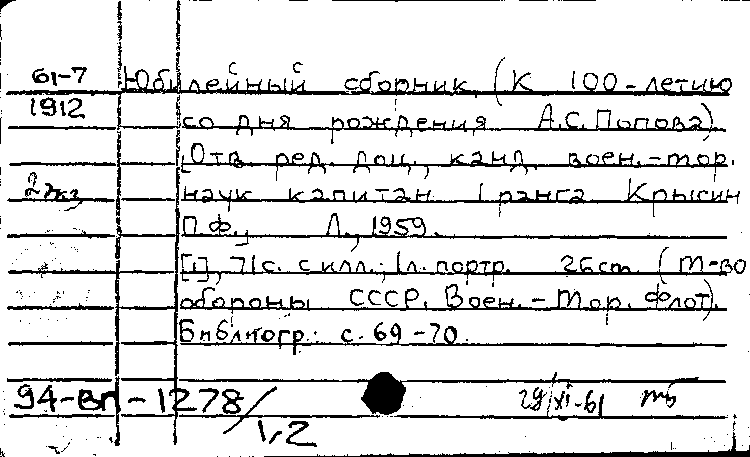 61-7 Юбилейный сборник. (К 100-летию
1912 со дня рождения А.С. Попова).
[Отв. ред. доц., канд. воен.-мор.
2экз наук капитан 1 ранга Крысин
П.Ф., Л., 1959.
[1], 71 с. с илл.; 1 л. портр. 26 cm. (М-во
обороны СССР. Воен.-Мор. Флот).
Библиогр.: с. 69-70.
94-ВП-1278/1,2 29/XI-61